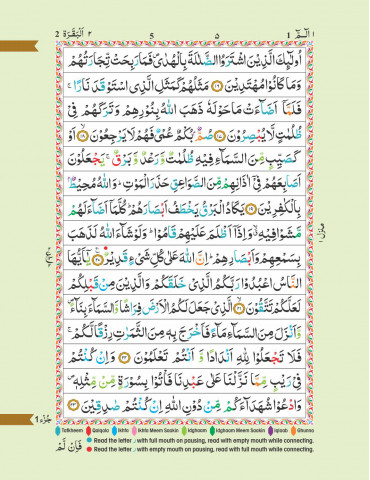 2 اَلْبَقَرَة ٢
5 ٥
1 الٓمّٓ ١
اُولٰٓئِكَ الَّذِيْنَ اشْتَرَوُا الضَّلٰلَةَ بِالْهُدٰى فَمَا رَبِحَتْ تِّجَارَتُهُمْ
وَمَا كَانُوْا مُهْتَدِيْنَ ﴿١٦﴾ مَثَلُهُمْ كَمَثَلِ الَّذِى اسْتَوْقَدَ نَارًا ۚ
فَلَمَّآ اَضَآءَتْ مَا حَوْلَهٗ ذَهَبَ اللّٰهُ بِنُوْرِهِمْ وَتَرَكَهُمْ فِىْ
ظُلُمٰتٍ لَّا يُبْصِرُوْنَ ﴿١٧﴾ صُمٌّۢ بُكْمٌ عُمْىٌ فَهُمْ لَا يَرْجِعُوْنَ ۙ﴿١٨﴾ اَوْ
كَصَيِّبٍ مِّنَ السَّمَآءِ فِيْهِ ظُلُمٰتٌ وَّرَعْدٌ وَّبَرْقٌ ۚ يَجْعَلُوْنَ
اَصَابِعَهُمْ فِىْٓ اٰذَانِهِمْ مِّنَ الصَّوَاعِقِ حَذَرَ الْمَوْتِ ؕ وَاللّٰهُ مُحِيْطٌۢ
بِالْكٰفِرِيْنَ ﴿١٩﴾ يَكَادُ الْبَرْقُ يَخْطَفُ اَبْصَارَهُمْ ؕ كُلَّمَآ اَضَآءَ لَهُمْ
مَّشَوْا فِيْهِ ۙ وَاِذَآ اَظْلَمَ عَلَيْهِمْ قَامُوْا ؕ وَلَوْ شَآءَ اللّٰهُ لَذَهَبَ
بِسَمْعِهِمْ وَاَبْصَارِهِمْ ؕ اِنَّ اللّٰهَ عَلٰى كُلِّ شَىْءٍ قَدِيْرٌ ﴿٢٠﴾ يٰٓاَيُّهَا
النَّاسُ اعْبُدُوْا رَبَّكُمُ الَّذِىْ خَلَقَكُمْ وَالَّذِيْنَ مِنْ قَبْلِكُمْ
لَعَلَّكُمْ تَتَّقُوْنَ ۙ﴿٢١﴾ الَّذِىْ جَعَلَ لَكُمُ الْاَرْضَ فِرَاشًا وَّالسَّمَآءَ بِنَآءً ۪
وَّاَنْزَلَ مِنَ السَّمَآءِ مَآءً فَاَخْرَجَ بِهٖ مِنَ الثَّمَرٰتِ رِزْقًا لَّكُمْ ۚ
فَلَا تَجْعَلُوْا لِلّٰهِ اَنْدَادًا وَّاَنْتُمْ تَعْلَمُوْنَ ﴿٢٢﴾ وَاِنْ كُنْتُمْ
فِىْ رَيْبٍ مِّمَّا نَزَّلْنَا عَلٰى عَبْدِنَا فَاْتُوْا بِسُوْرَةٍ مِّنْ مِّثْلِهٖ ۪
وَادْعُوْا شُهَدَآءَكُمْ مِّنْ دُوْنِ اللّٰهِ اِنْ كُنْتُمْ صٰدِقِيْنَ ﴿٢٣﴾
منزل ١
جُزْء 1
Tafkheem Qalqala Ikhfa Ikhfa Meem Saakin Idghaam Idghaam Meem Saakin Iqlaab Ghunna
Read the letter ر with full mouth on pausing, read with empty mouth while connecting.
Read the letter ر with empty mouth on pausing, read with full mouth while connecting.
فَاِنْ لَّمْ